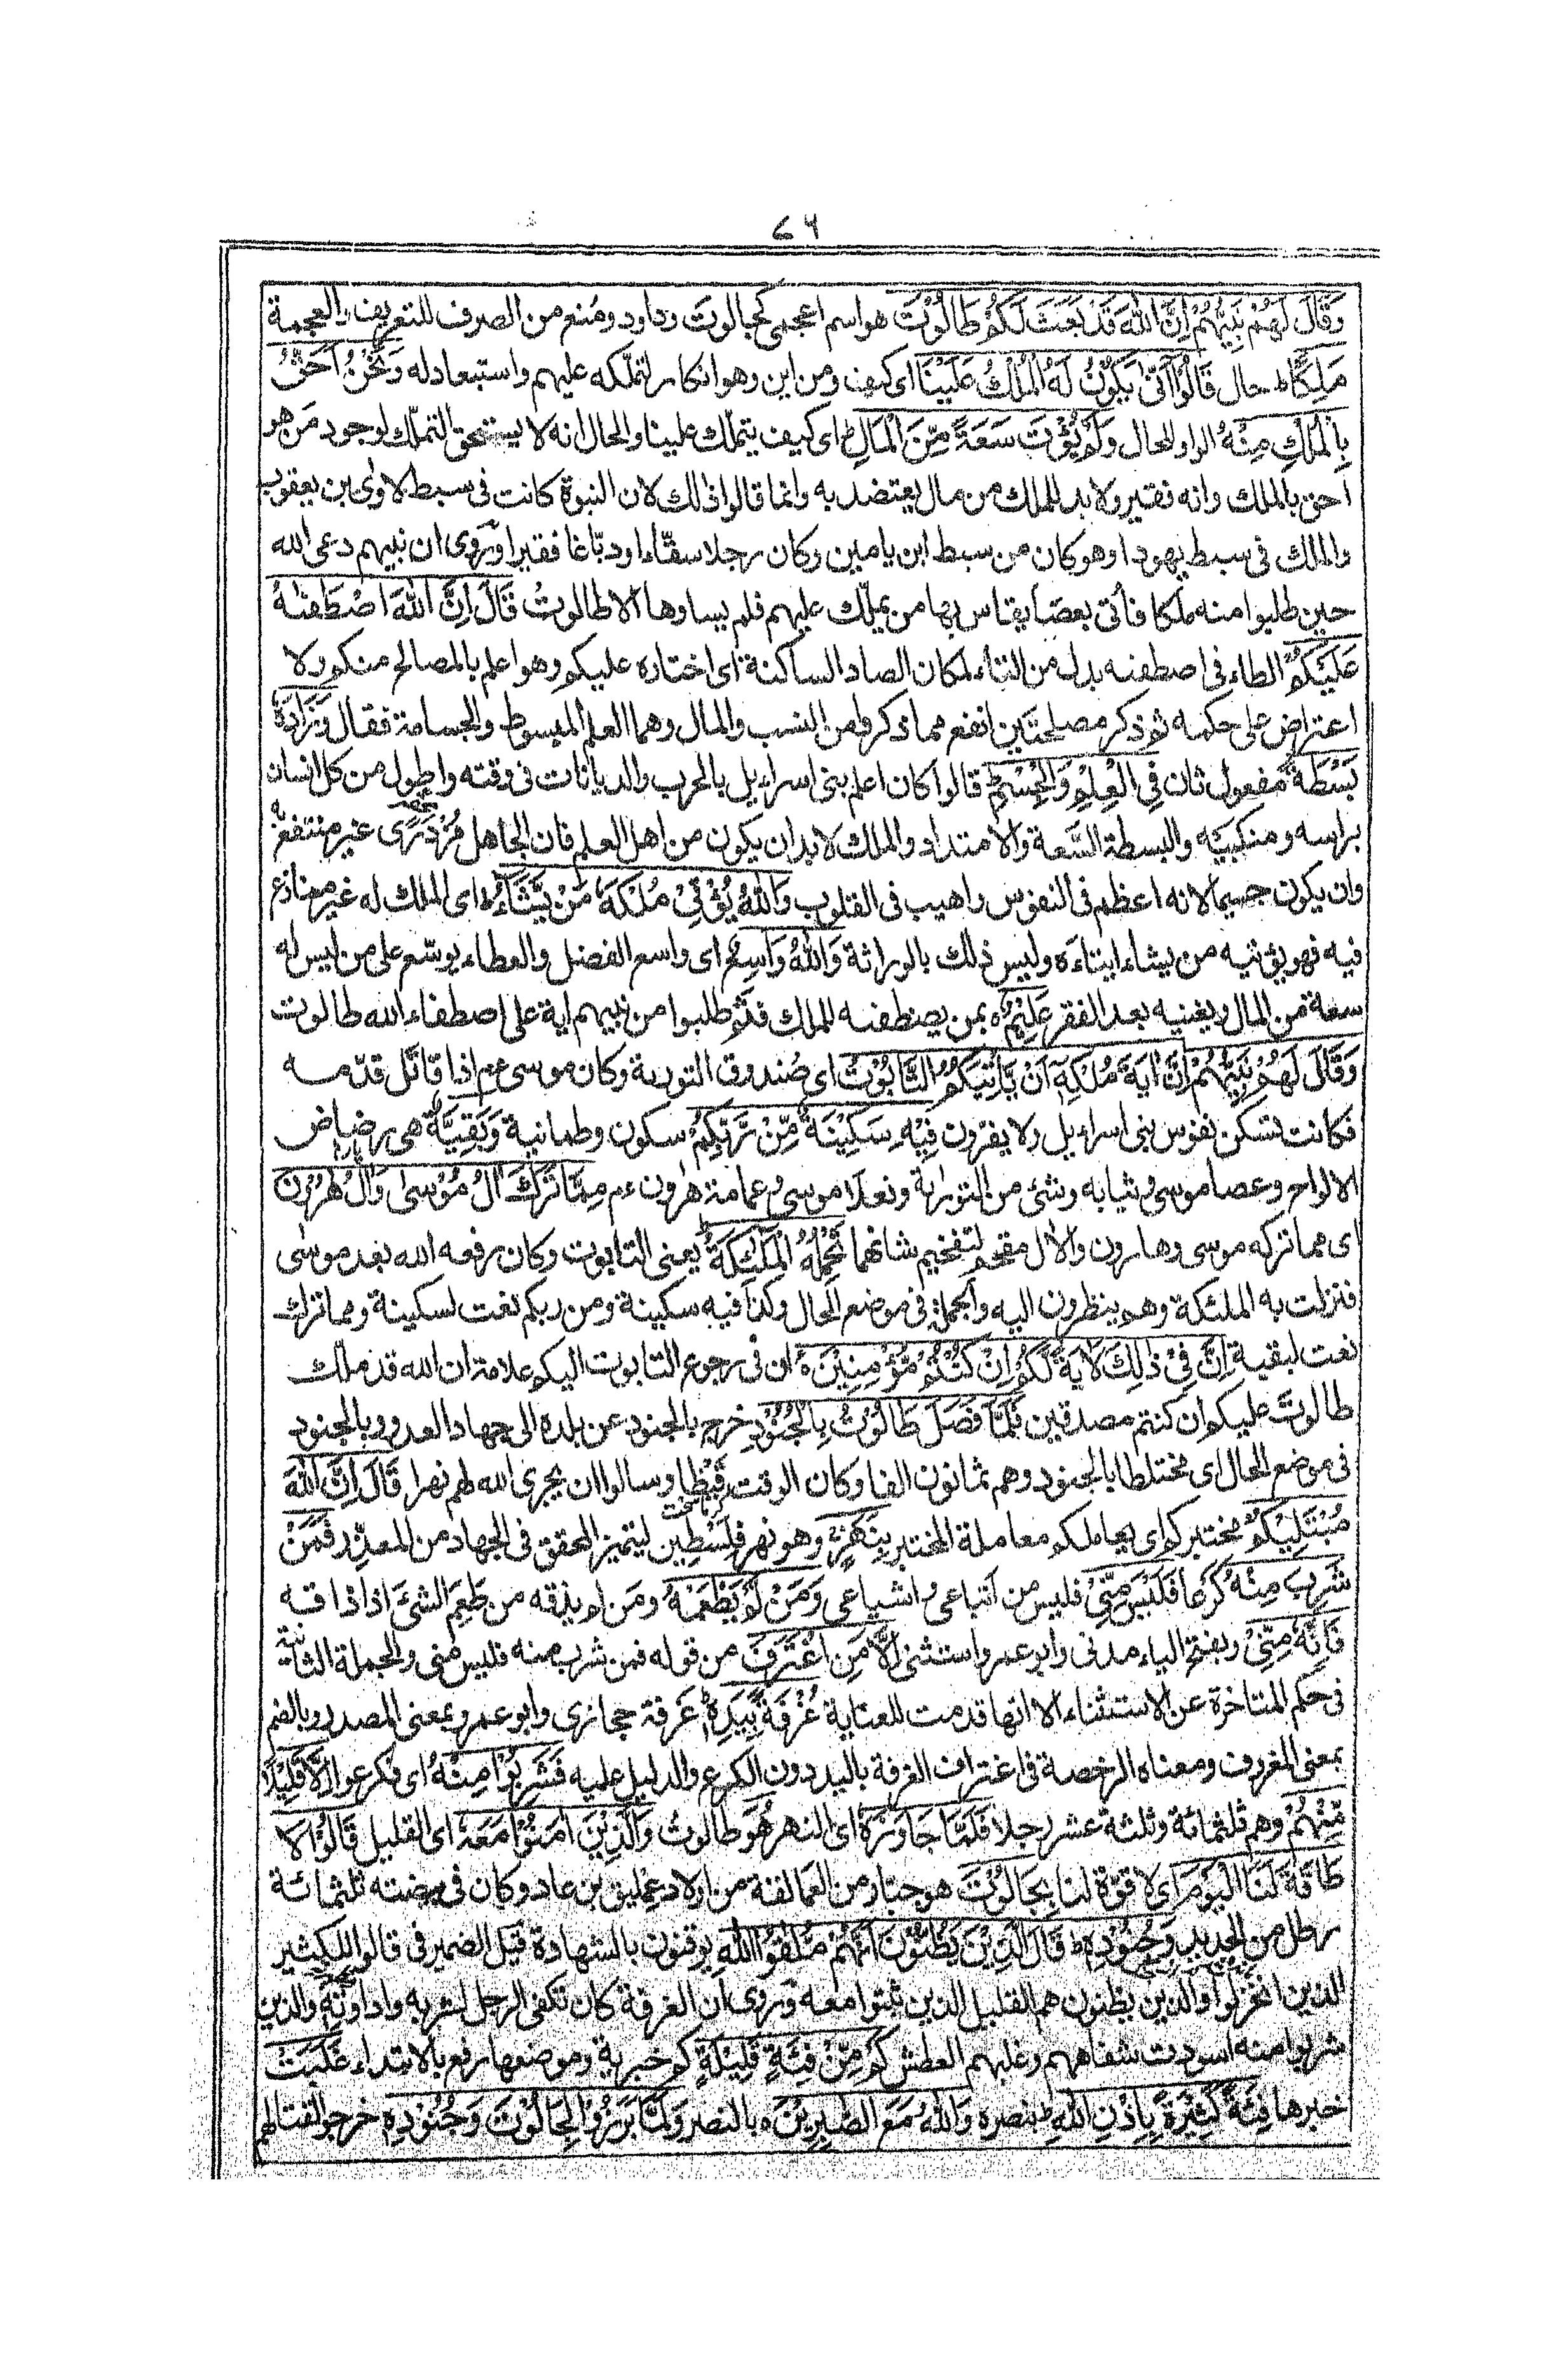 ٧٦
وَقَالَ لَهُمْ نَبِيُّهُمْ اِنَّ اللّٰهَ قَدْ بَعَثَ لَكُمْ طَالُوْتَ هو اسم اعجمى كجالوتَ وداود ومُنع من الصرف للتعريف والعجمة
مَلِكًاؕ حال قَالُوْٓا اَنّٰى يَكُوْنُ لَهُ الْمُلْكُ عَلَيْنَا اى كيف ومن اين وهو انكار لتملّكه عليهم واستبعاد له وَنَحْنُ اَحَقُّ
بِالْمُلْكِ مِنْهُ الواو للحال وَلَمْ يُؤْتَ سَعَةً مِّنَ الْمَالِؕ اى كيف يتملّك علينا والحال انه لا يستحق التملّك لوجود مَن هو
احق بالملك وانه فقير ولا بد للملك من مال يعتضد به وانما قالوا ذلك لان النبوة كانت فى سبط لاوى بن يعقوب
والملك فى سبط يهودا وهو كان من سبط ابن يامين وكان رجلا سقّاء او دبّاغا فقيرا ورُوى ان نبيهم دعى الله
حين طلبوا منه ملكا فأتى بعصًا يقاس بها من يملّك عليهم فلم يساوها الا طالوتُ قَالَ اِنَّ اللّٰهَ اصْطَفٰىهُ
عَلَيْكُمْ الطاء فى اصطفىه بدل من التاء لمكان الصاد الساكنة اى اختاره عليكم وهو اعلم بالمصالح منكم ولا
اعتراض على حكمه ثم ذكر مصلحتين انفع مما ذكروا من النسب والمال وهما العلم المبسوط والجسامة فقال وَزَادَهٗ
بَسْطَةً مفعول ثان فِى الْعِلْمِ وَالْجِسْمِؕ قالوا كان اعلم بنى اسراءيل بالحرب والديانات فى وقته واطول من كل انسان
براسه ومنكبيه والبسطة السَّعة والامتداد والملك لا بد ان يكون من اهل العلم فان الجاهل مُزْدَرًى غير منتفع به
وان يكون جسيما لانه اعظم فى النفوس واهيب فى القلوب وَاللّٰهُ يُؤْتِيْ مُلْكَهٗ مَنْ يَّشَآءُؕ اى الملك له غير منازع
فيه فهو يؤتيه من يشاء ايتاءَه وليس ذلك بالوراثة وَاللّٰهُ وَاسِعٌ اى واسع الفضل والعطاء يوسّع على من ليس له
سعة من المال ويغنيه بعد الفقر عَلِيْمٌ ه بمن يصطفىه للملك فثَمّ طلبوا من نبيهم اية على اصطفاء الله طالوت
وَقَالَ لَهُمْ نَبِيُّهُمْ اِنَّ اٰيَةَ مُلْكِهٖٓ اَنْ يَّاْتِيَكُمُ التَّابُوْتُ اى صُندوق التورىة وكان موسى عم اذا قاتل قدّمه
فكانت تسكن نفوس بنى اسراءيل ولا يفرون فِيْهِ سَكِيْنَةٌ مِّنْ رَّبِّكُمْ سكون وطمانينة وَبَقِيَّةٌ هى رضاض
الالواح وعصا موسى وثيابه وشئ من التوراىة ونعلا موسى وعمامة هٰرون عم مِمَّا تَرَكَ اٰلُ مُوْسٰى وَاٰلُ هٰرُوْنَ
اى مما تركه موسى وهارون والال مقحم لتفخيم شانهما تَحْمِلُهُ الْمَلٰٓئِكَةُؕ يعنى التابوت وكان رفعه الله بعد موسى
فنزلت به الملئكة وهم ينظرون اليه والجملة فى موضع الحال وكذا فيه سكينة ومن ربكم نعت لسكينة ومما ترك
نعت لبقية اِنَّ فِيْ ذٰلِكَ لَاٰيَةً لَّكُمْ اِنْ كُنْتُمْ مُّؤْمِنِيْنَ ه ان فى رجوع التابوت اليكم علامة ان الله قد ملّك
طالوتَ عليكم ان كنتم مصدقين فَلَمَّا فَصَلَ طَالُوْتُ بِالْجُنُوْدِ خرج بالجنود عن بلده الى جهاد العدو وبالجنود
فى موضع الحال اى مختلطا بالجنود وهم ثمانون الفا وكان الوقت قَيْظا وسالوا ان يجرى الله لهم نهرا قَالَ اِنَّ اللّٰهَ
مُبْتَلِيْكُمْ مختبركم اى يعاملكم معاملة المختبر بِنَهَرٍ وهو نهر فِلَسْطِين ليتميز المحقق فى الجهاد من المعذّر فَمَنْ
شَرِبَ مِنْهُ كَرْعا فَلَيْسَ مِنِّيْ فليس من اَتباعى واشياعى وَمَنْ لَّمْ يَطْعَمْهُ ومَن لم يذقه من طَعِمَ الشئَ اذا ذاقه
فَاِنَّهٗ مِنِّيْٓ وبفتح الياء مدنى وابو عمرو واستثنى اِلَّا مَنِ اغْتَرَفَ من قوله فمن شرب منه فليس منى والجملة الثانية
فى حكم المتاخرة عن الاستثناء الا انها قدمت للعناية غُرْفَةًۢ بِيَدِهٖ غَرفة حجازى وابو عمرو بمعنى المصدر وبالضم
بمعنى المغروف ومعناه الرخصة فى اغتراف الغرفة باليد دون الكرع والدليل عليه فَشَرِبُوْا مِنْهُ اى فكرعوا اِلَّا قَلِيْلًا
مِّنْهُمْ وهم ثلثمائة وثلثة عشر رجلا فَلَمَّا جَاوَزَهٗ اى النهر هُوَ طالوتُ وَالَّذِيْنَ اٰمَنُوْا مَعَهٗ اى القليل قَالُوْا لَا
طَاقَةَ لَنَا الْيَوْمَ اى لا قوة لنا بِجَالُوْتَ هو جبّار من العمالقة من اولاد عمليق بن عاد وكان فى بيضته ثلثمائة
رطل من الحديد وَجُنُوْدِهٖؕ قَالَ الَّذِيْنَ يَظُنُّوْنَ اَنَّهُمْ مُّلٰقُوا اللّٰهِ يوقنون بالشهادة قيل الضمير فى قالوا للكثير
الذين انخزلوا والذين يظنون هم القليل الذين ثبتوا معه ورُوى ان الغرفة كان تكفى الرجل لشربه واداوته والذين
شربوا منه اسودت شفاههم وغلبهم العطش كَمْ مِّنْ فِئَةٍ قَلِيْلَةٍ كم خبرية وموضعها رفع بالابتداء غَلَبَتْ
خبرها فِئَةً كَثِيْرَةًۢ بِاِذْنِ اللّٰهِؕ بنصره وَاللّٰهُ مَعَ الصّٰبِرِيْنَ ه بالنصر وَلَمَّا بَرَزُوْا لِجَالُوْتَ وَجُنُوْدِهٖ خرجوا لقتالهم